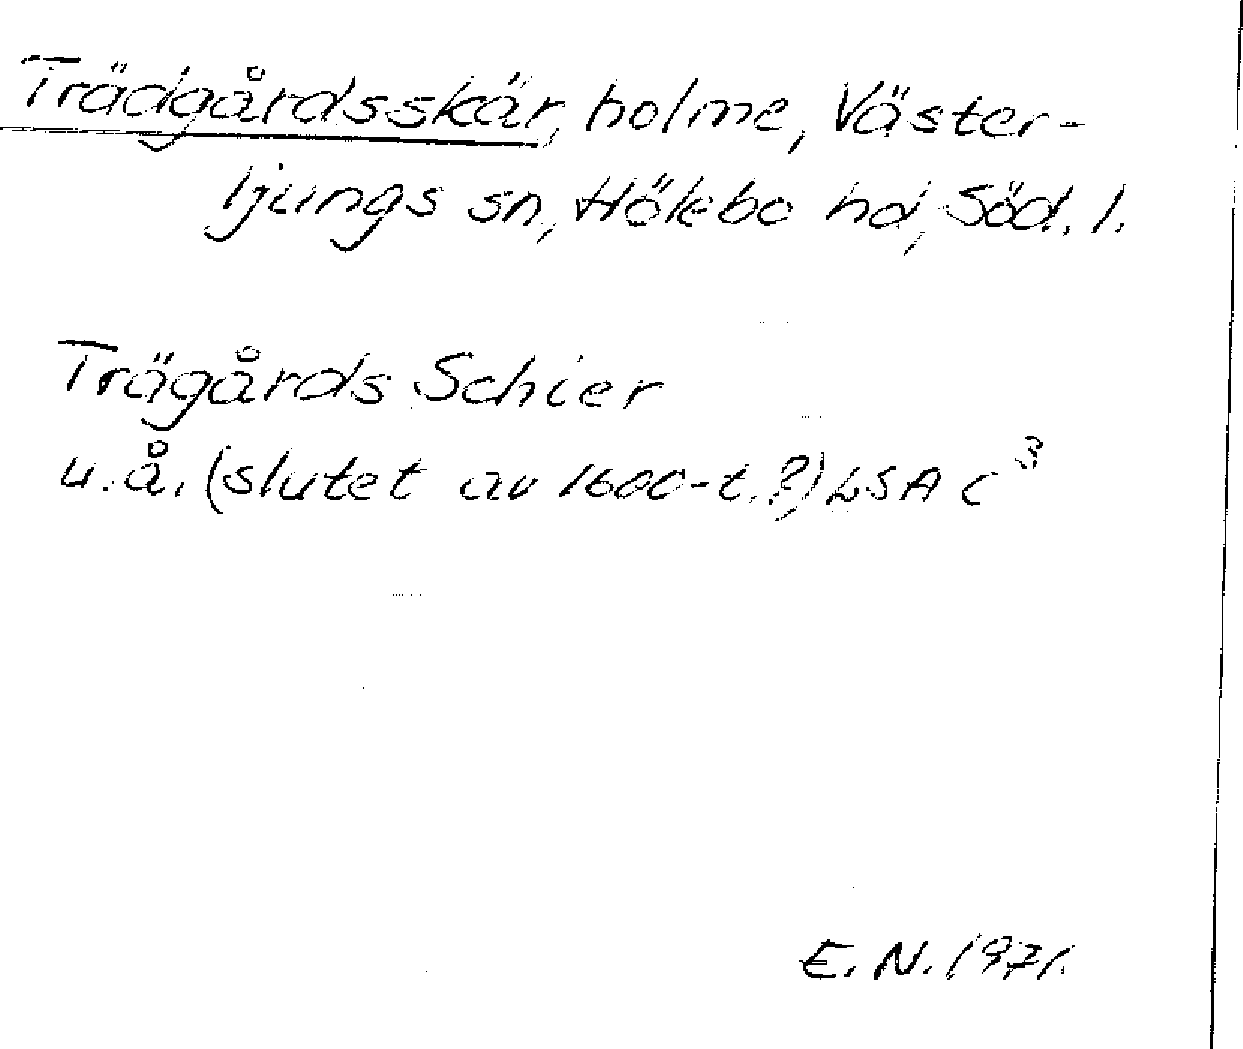 Trädgårdsskär, holme, Väster-
ljungs sn, Hölebo hd, Söd. l.
Trägårds Schier
u.å. (slutet av 1600-t.?) LSA C³
E. N. 1971.